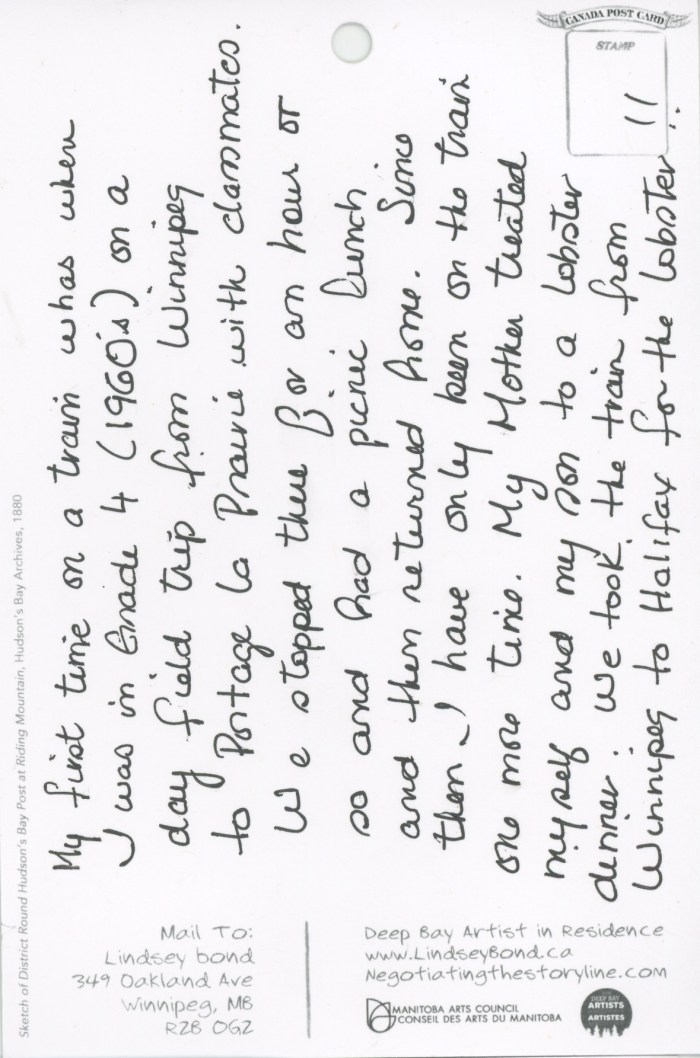 My first time on a train whas when
I was in Grade 4 (1960's) on a
day field trip from Winnipeg
to Portage la Prairie with classmates.
We stopped there for an hour or
so and had a picnic lunch
and then returned home. Since
then I have only been on the train
one more time. My Mother treated
myself and my son to a lobster
dinner. We took the train from
Winnipeg to Halifax for the lobster!!
CANADA POST CARD
STAMP
Mail To:
Lindsey bond
349 Oakland Ave
Winnipeg, MB
R2B 0G2
Deep Bay Artist in Residence
www.LindseyBond.ca
Negotiatingthestoryline.com
MANITOBA ARTS COUNCIL
CONSEIL DES ARTS DU MANITOBA
DEEP BAY
ARTISTS
ARTISTES
Sketch of District Round Hudson's Bay Post at Riding Mountain, Hudson's Bay Archives, 1880